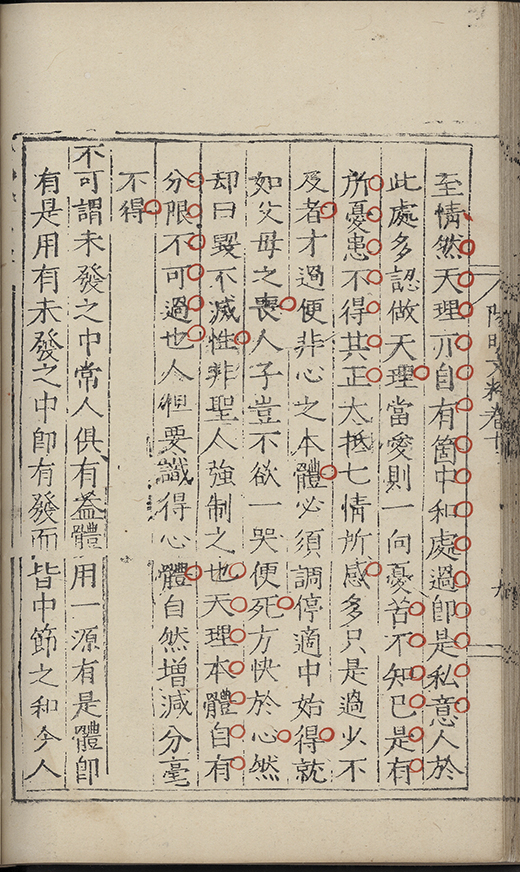 陽明文粹卷十
至情然天理亦自有箇中和處過卽是私意人於
此處多認做天理當憂則一向憂苦不知已是有
所憂患不得其正大抵七情所感多只是過少不
及者才過便非心之本體必須調停適中始得就
如父母之喪人子豈不欲一哭便死方快於心然
却曰毀不滅性非聖人強制之也天理本體自有
分限不可過也人但要識得心體自然增減分毫
不得
不可謂未發之中常人俱有蓋體用一源有是體卽
有是用有未發之中卽有發而皆中節之和今人